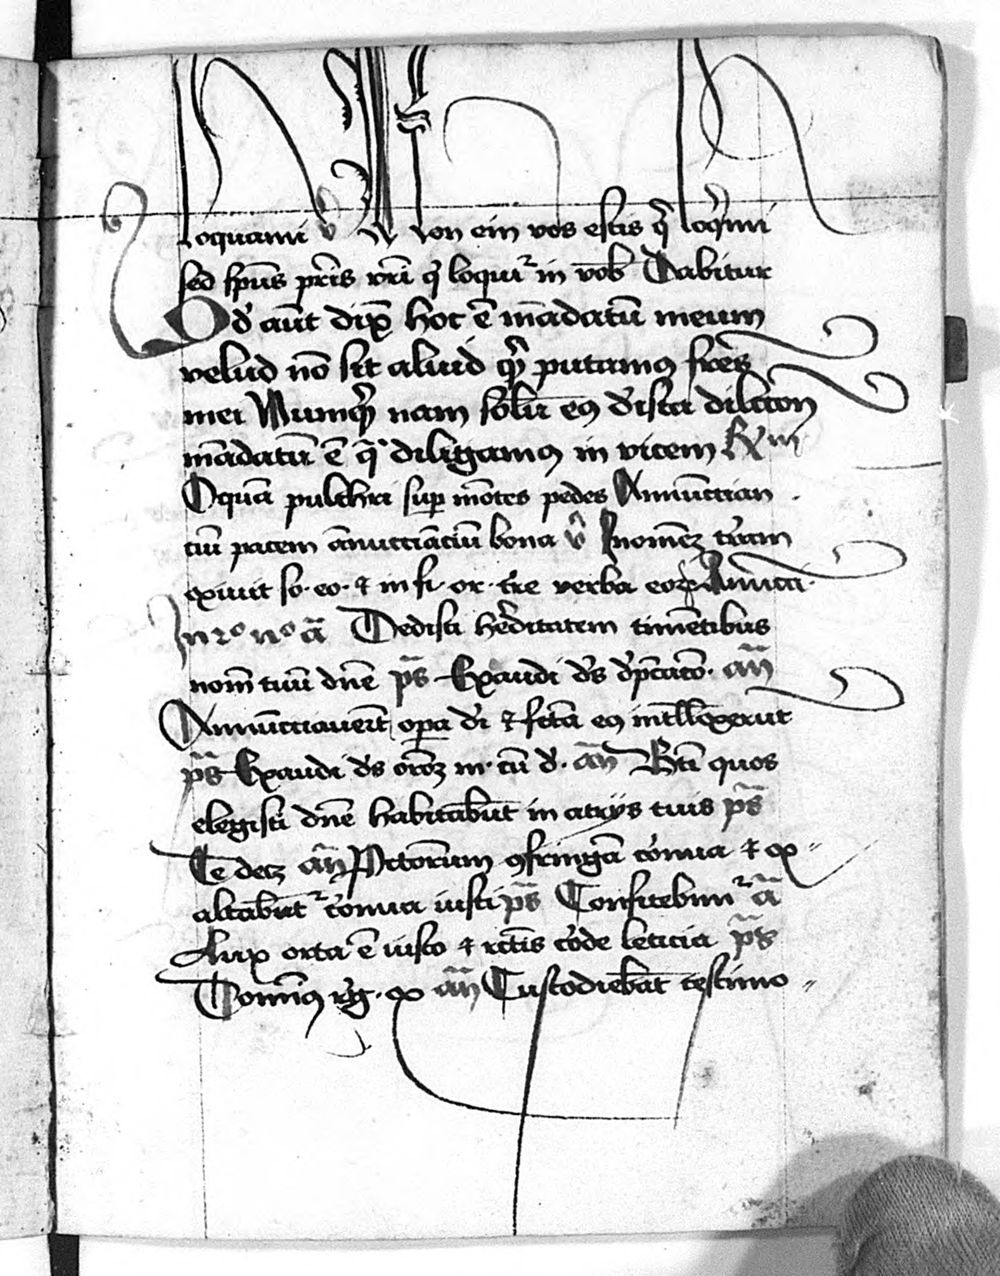 loquami v̄ Non em̄ vos estis q̄ loq̄mi
sed sp̄us pr̄is vr̄i q̄ loquit᷑ in vob̄ Dabitur
Qd̄ aūt dix hoc ē mādatū meum
velud nō sit aliud q̄ putamꝰ fr̄es
mei Numq̄ nam solū eꝰ de ista dilc̄ion
mādatū ē q̄ diligamꝰ in vicem
O quā pulchri sup mōtes pedes Annūctian
ciū pacem ānucciāciū bona v̄ In omnēꝫ t̄ram
exiuit so· eo· ⁊ in fi· or· t̄re verba eoꝝ Anūcci·
In 2º nº ā Dedisti her̄ditatem timētibus
nom̄ tuū dn̄e p̄s Exaudi d̄s dep̄cac̄o· an̄
Annūcciauer̄t opa dei ⁊ fc̄ta eꝰ intll̄exerūt
p̄s Exaudi d̄s or̄oēꝫ m· cū d· an̄ Bt̄i quos
elegisti dn̄e habitabūt in atrijs tuis p̄s
Te decꝫ an̄ Pctorum ꝯfringā cornua ⁊ ex
altabūt᷑ cornua iusti p̄s Confitebim᷑ ā
Lux orta ē iusto ⁊ rc̄tis corde leticia p̄s
Domīꝰ reg· ex an̄ Custodiebāt testimo